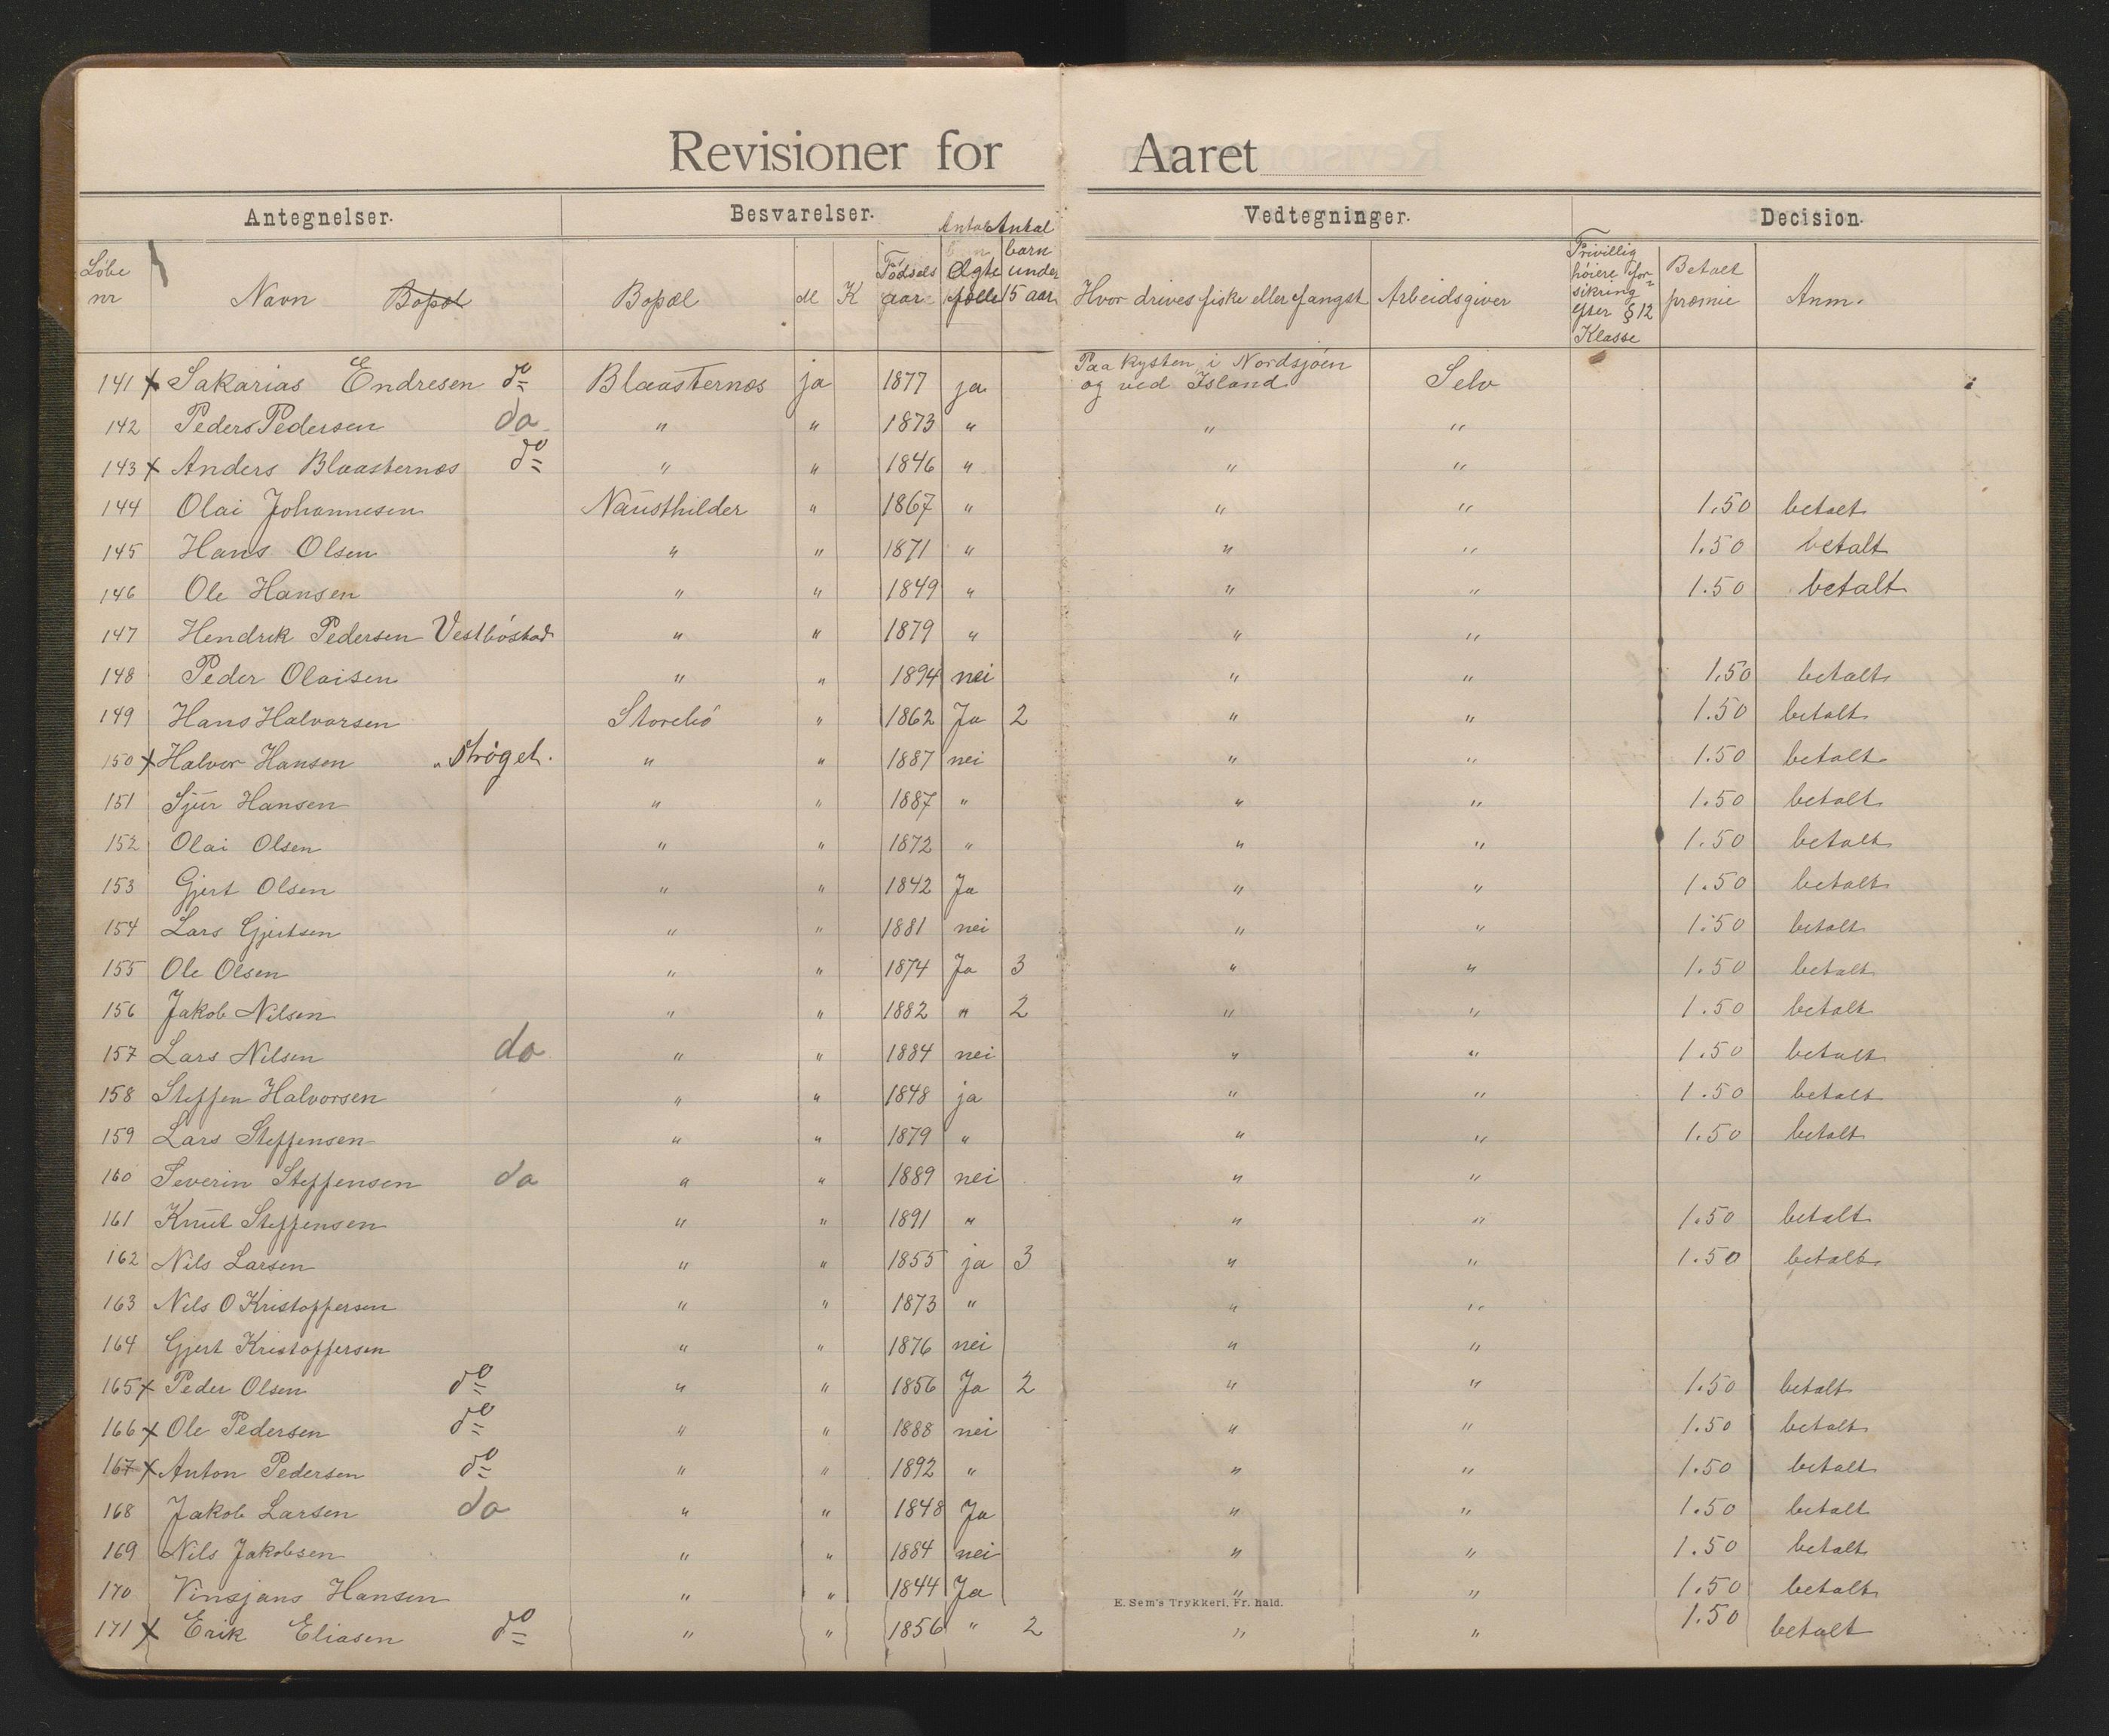 Revisioner for Aaret
Antegnelser. Besvarelser. Vedtegninger. Decision.
Löbe nr Navn Bopæl Bopæl M K Födsels aar Antal Ægte fælle Antal barn under 15 aar Hvor drives fiske eller fangst Arbeidsgiver Frivillig höiere forsikring efter § 12 Klasse Betalt præmie Anm.
141 x Sakarias Endresen do Blaasternes ja 1877 ja Paa kysten i Nordsjöen og ved Island Selv
142 Peder Pedersen do " " 1873 " " "
143 x Anders Blaasternes do " " 1846 " " "
144 Olai Johannesen Nausthilder " 1867 " " " 1.50 betalt
145 Hans Olsen " " 1871 " " " 1.50 betalt
146 Ole Hansen " " 1849 " " " 1.50 betalt
147 Hendrik Pedersen Vestböstad " " 1879 " " "
148 Peder Olaisen " " 1894 nei " " 1.50 betalt
149 Hans Halvorsen Storebö " 1862 Ja 2 " " 1.50 betalt
150 x Halvor Hansen " Ströget. " " 1887 nei " " 1.50 betalt
151 Sjur Hansen " " 1887 " " " 1.50 betalt
152 Olai Olsen " " 1872 " " " 1.50 betalt
153 Gjert Olsen " " 1842 Ja " " 1.50 betalt
154 Lars Gjertsen " " 1881 nei " " 1.50 betalt
155 Ole Olsen " " 1874 Ja 3 " " 1.50 betalt
156 Jakob Nilsen " " 1882 " 2 " " 1.50 betalt
157 Lars Nilsen do " " 1884 nei " " 1.50 betalt
158 Steffen Halvorsen " " 1848 ja " " 1.50 betalt
159 Lars Steffensen " " 1879 " " " 1.50 betalt
160 Severin Steffensen do " " 1889 nei " "
161 Knut Steffensen " " 1891 " " " 1.50 betalt
162 Nils Larsen " " 1855 ja 3 " " 1.50 betalt
163 Nils O Kristoffersen " " 1873 " " "
164 Gjert Kristoffersen " " 1876 nei " "
165 x Peder Olsen do " " 1856 Ja 2 " " 1.50 betalt
166 x Ole Pedersen do " " 1888 nei " " 1.50 betalt
167 x Anton Pedersen do " " 1892 " " " 1.50 betalt
168 Jakob Larsen do " " 1848 Ja " " 1.50 betalt
169 Nils Jakobsen " " 1884 nei " " 1.50 betalt
170 Vinsjans Hansen " " 1844 Ja " " 1.50 betalt
E. Sem's Trykkeri, Fr. hald.
171 x Erik Eliasen do " " 1856 " 2 " " 1.50 betalt